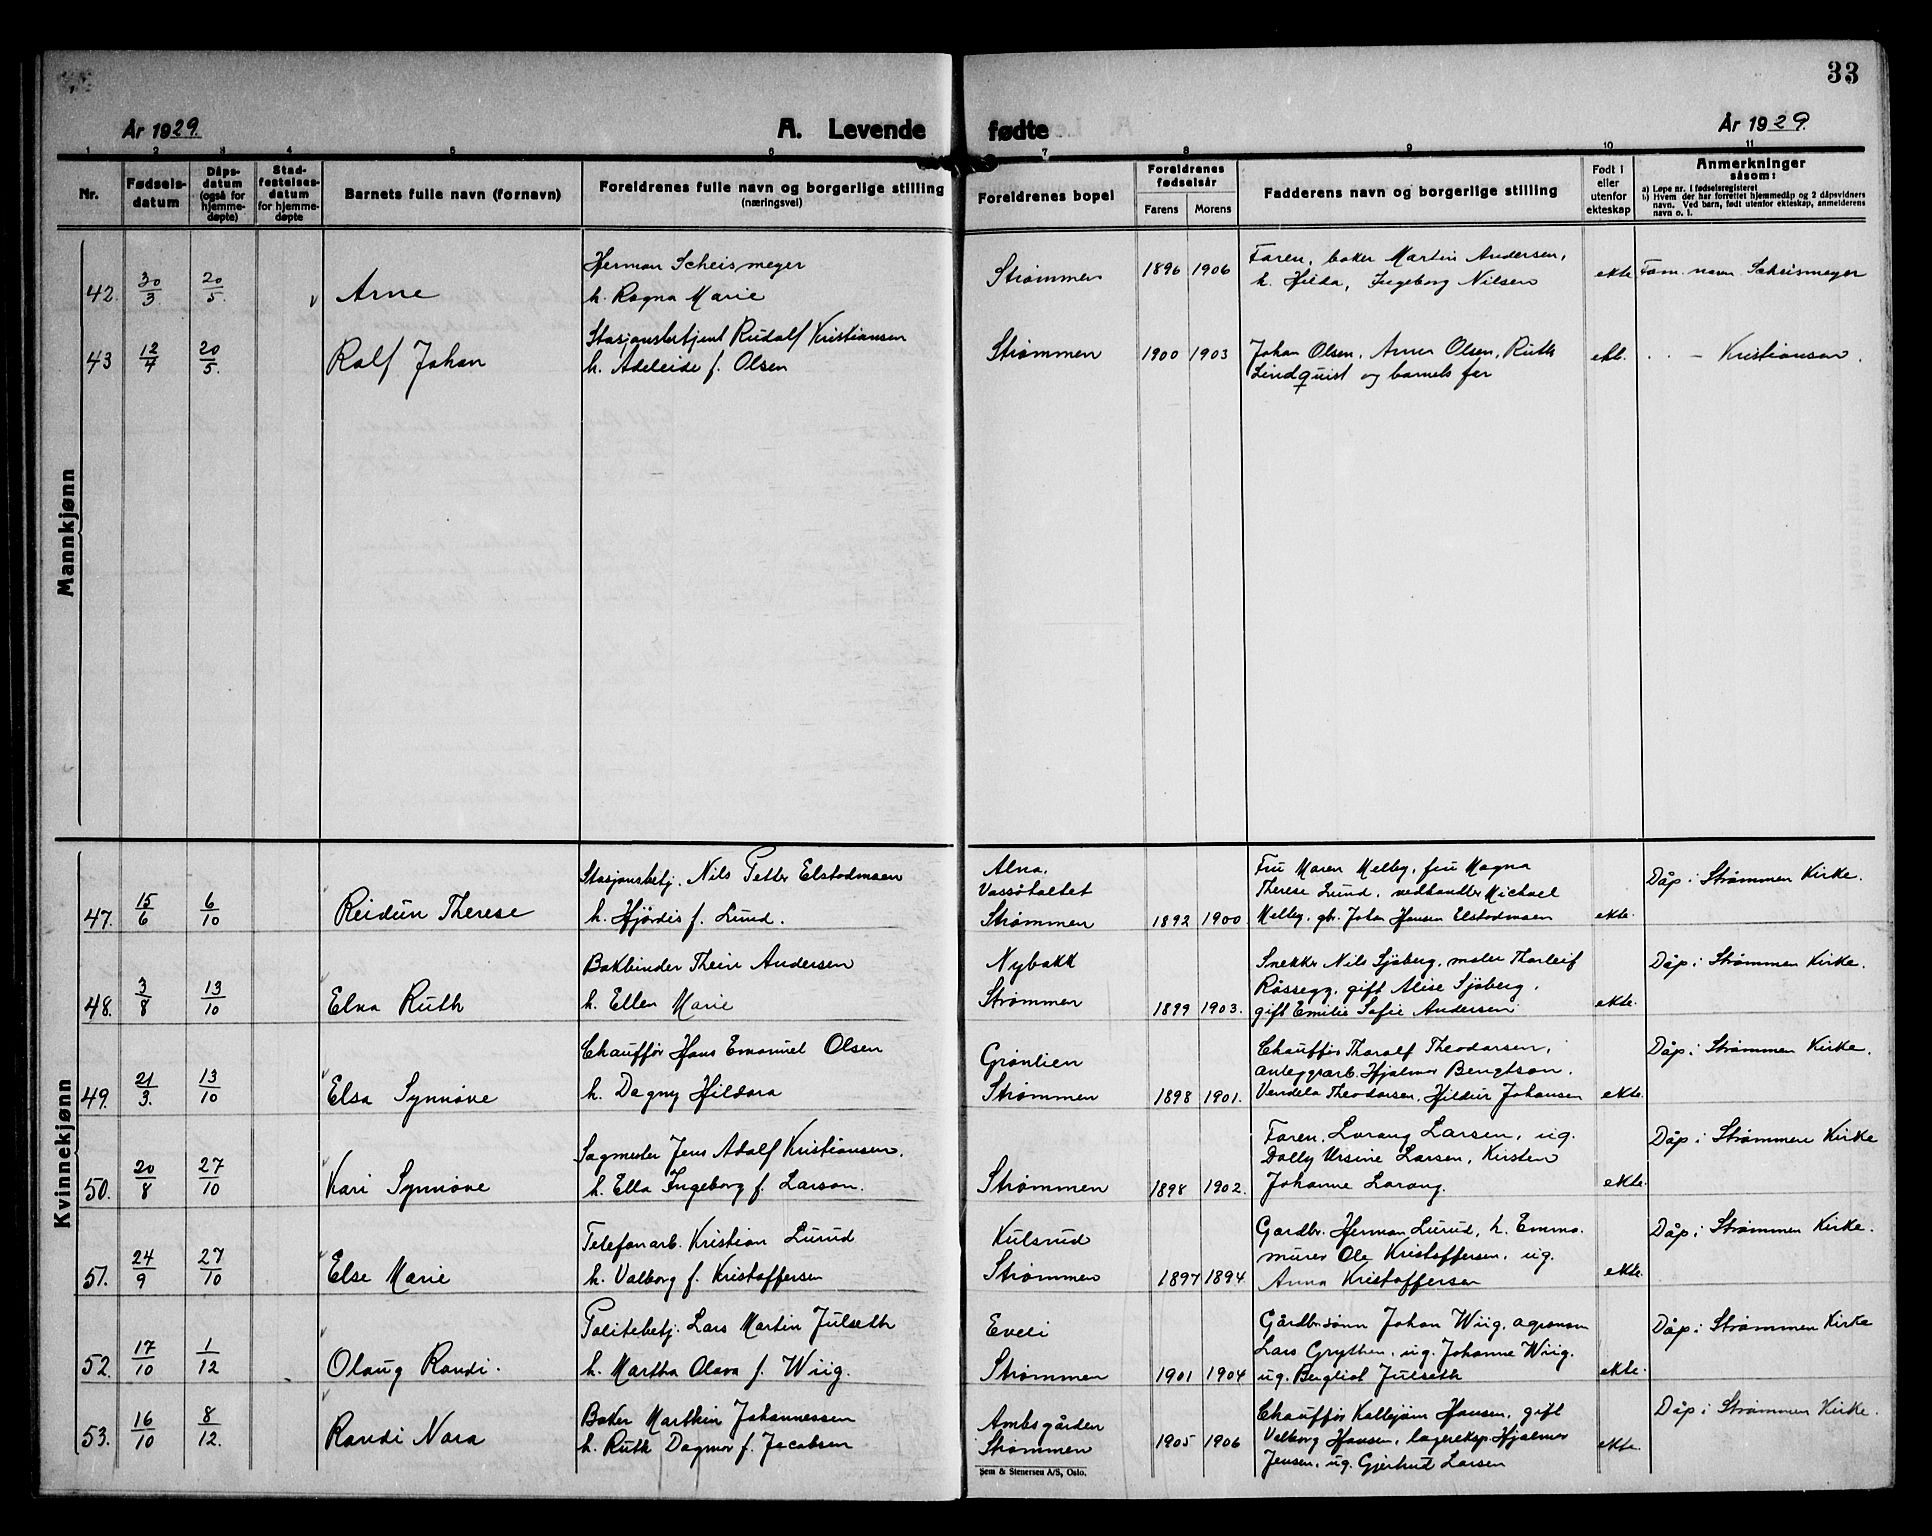 33
År 1929.
A. Levende fødte
År 1929.
1 2 3 4 5 6 7 8 9 10 11
Nr.
Fødsels-
datum
Dåps-
datum
(også for
hjemme-
døpte)
Stad-
festelses-
datum
for hjemme-
døpte
Barnets fulle navn (fornavn)
Foreldrenes fulle navn og borgerlige stilling
(næringsvei)
Foreldrenes bopel
Foreldrenes
fødselsår
Farens Morens
Fadderens navn og borgerlige stilling
Født i
eller
utenfor
ekteskap
Anmerkninger
såsom:
a) Løpe nr. i fødselsregisteret
b) Hvem der har forrettet hjemmedåp og 2 dåpsvidners
navn. Ved barn, født utenfor ekteskap, anmelderens
navn o. l.
Mannkjønn
42. 30/3 20/5. Arne
Herman Scheismeyer
h. Ragna Marie
Strømmen 1896 1906
Faren, baker Martin Andersen,
h. Hilda, Ingeborg Nilsen
ekte Fam. navn Scheismeyer
43 12/4 20/5. Ralf Johan
Stasjonsbetjent Rudolf Kristiansen
h. Adeleide f. Olsen
Strømmen 1900 1903
Johan Olsen, Arne Olsen, Ruth
Lindquist og barnets far
ekt. " - Kristiansen.
Kvinnekjønn
47. 15/6 6/10 Reidun Therese
Stasjonsbetj. Nils Petter Elstodmoen
h. Hjördis f. Lund.
Alna,
Strømmen 1892 1900
Fru Maren Melby, fru Magna
Therese Lund, vedhandler Michael
Melby, gbr. Johan Hansen Elstodmoen
ekte. Dåp i Strømmen Kirke.
48. 3/8 13/10 Elna Ruth
Bokbinder Andersen
h. Ellen Marie
Nybakk
Strømmen 1899 1903.
Snekker Nils Sjöberg, maler Thorleif
Røssegg, gift Alise Sjöberg,
gift Emilie Sofie Andersen
ekte. Dåp i Strømmen Kirke.
49. 21/3. 13/10 Elsa Synnöve
Chauffør Hans Emanuel Olsen
h. Dagny Hildora
Grønlien
Strømmen 1898 1901.
Chauffør Tharalf Theodorsen,
anleggsarb. Hjalmar Bengtson,
Vendela Theodorsen, Hildur Johansen
ekte. Dåp i Strømmen Kirke.
50. 20/8 27/10 Kari Synnöve
Sagmester Jens Adolf Kristiansen,
h. Ella Ingeborg f. Larsen.
Strømmen 1898 1902.
Faren, Lorang Larsen, ug.
Dolly Ursine Larsen, Kirsten
Johanne Lorang.
ekte. Dåp i Strømmen Kirke
51. 24/9 27/10 Else Marie
Telefonarb. Kristian Lurud
h. Valborg f. Kristoffersen
Kulsrud
Strømmen 1897 1894
Gardbr. Herman Lurud, h. Emma.
murer Ole Kristoffersen, ug.
Anna Kristoffersen
ekte. Dåp i Strømmen Kirke.
52. 17/10 1/12 Olaug Randi.
Politebetj. Lars Martin Julseth
h. Martha Olava f. Wiig.
Eveli
Strømmen 1901 1904
Gårdbr.sønn Johan Wiig, agronom
Lars Grythen, ug. Johanne Wiig.
ug. Bergliot Julseth
ekte. Dåp i Strømmen Kirke
53. 16/10 8/12. Randi Nora
Baker Marthin Johannessen
h. Ruth Dagmar f. Jacobsen
Ambsgården
Strømmen 1905 1906
Chauffør Hansen, gift
Valborg Hansen, lagereksp. Hjalmar
Jensen, ug. Gjertrud Larsen
ekte. Dåp i Strømmen Kirke.
Sem & Stenersen A/S, Oslo.